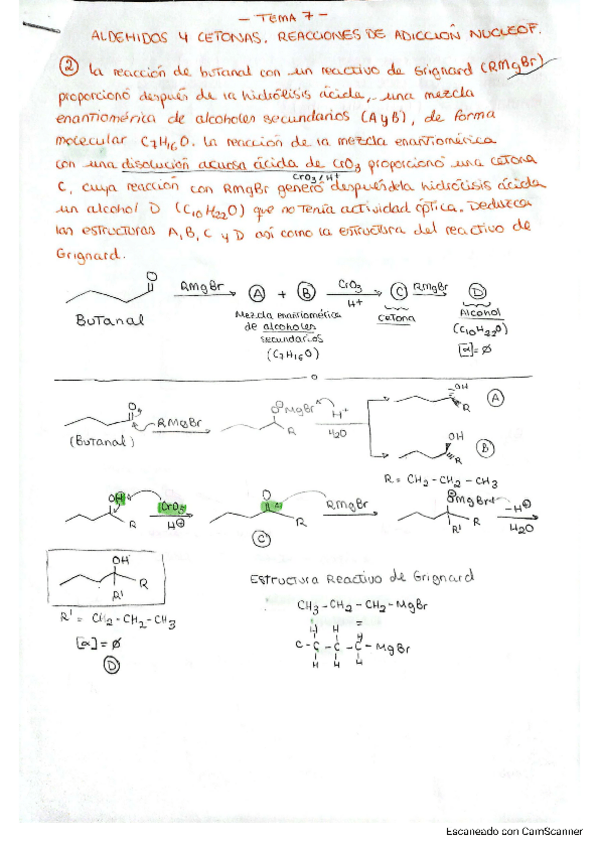 - TEMA 7 -
ALDEHIDOS Y CETONAS. REACCIONES DE ADICCIÓN NUCLEOF.
② La reacción de butanal con un reactivo de Grignard (RMgBr)
proporcionó después de la hidrólisis ácida, una mezcla
enantiomérica de alcoholes secundarios (A y B), de forma
molecular C7H16O. La reacción de la mezcla enantiomérica
con una disolución acuosa ácida de CrO3 proporcionó una cetona
CrO3/H+
C, cuya reacción con RMgBr generó después de la hidrólisis ácida
un alcohol D (C10H22O) que no tenía actividad óptica. Deduzca
las estructuras A, B, C y D así como la estructura del reactivo de
Grignard.
O
RMgBr
A + B
CrO3
H+
C
RMgBr
D
Butanal
Mezcla enantiomérica
de alcoholes
secundarios
(C7H16O)
cetona
Alcohol
(C10H22O)
[α]=Ø
O
RMgBr
(Butanal)
O MgBr
R
H+
H2O
OH
R
A
OH
R
B
R = CH2-CH2-CH3
OH
R
CrO3
H⊕
O
R
C
RMgBr
OMgBr
R' R
-H⊕
H2O
OH
R
R'
R' = CH2-CH2-CH3
[α]=Ø
D
Estructura Reactivo de Grignard
CH3-CH2-CH2-MgBr
H H H
C-C-C-C-MgBr
H H H
Escaneado con CamScanner